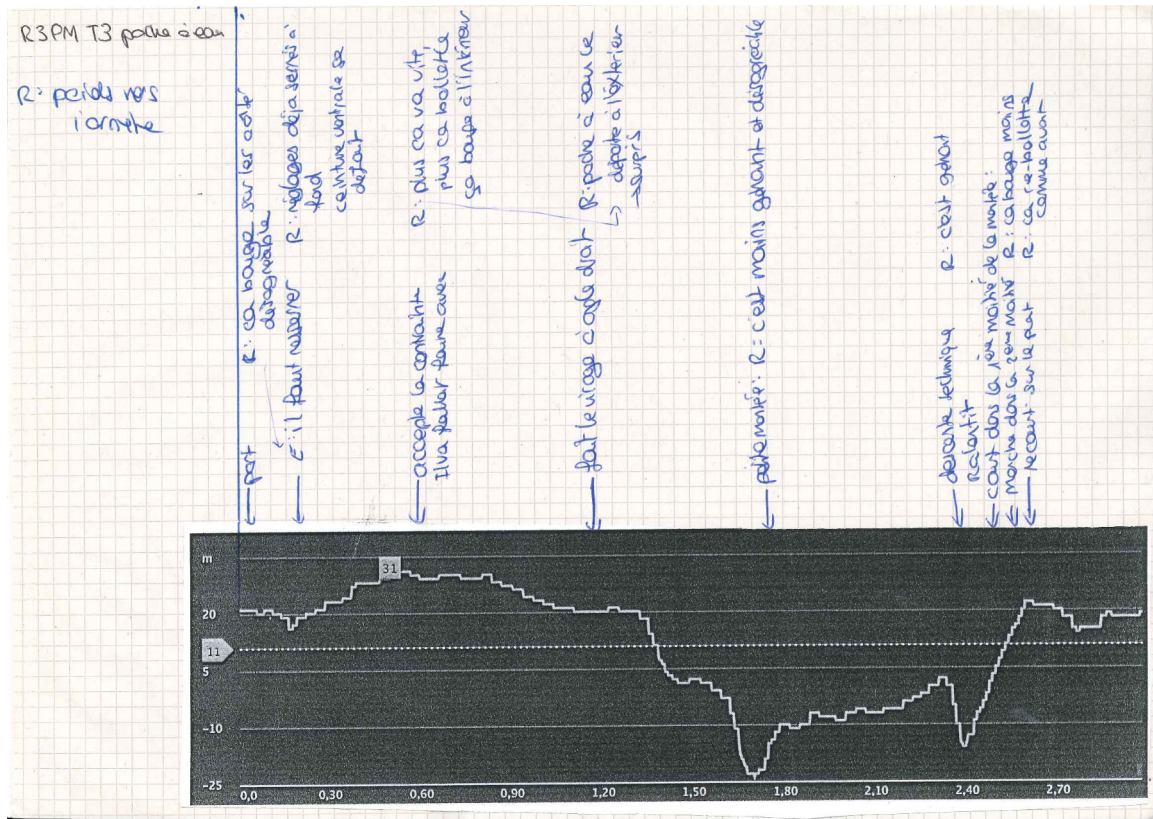 R3PM T3 poche à eau
R: poids vers
l'arrière
← part R: ça bouge sur les côté
désagréable
← E: il faut resserrer R: réglages déjà serrés à
fond
ceinture ventrale se
défait
← accepte la contrainte R: plus ça va vite,
Il va falloir faire avec plus ça ballotte
ça bouge à l'intérieur
← fait le virage à angle droit R: poche à eau le
déporte à l'extérieur
→ surpris
← petite montée: R: c'est moins gênant et désagréable
← descente technique R: c'est gênant
Ralentit
← court dans la 1ère moitié de la montée:
← marche dans la 2ème moitié R: ça bouge moins
← recourt sur le plat R: ça re-ballotte
comme avant
m
31
20
11
5
-10
-25
0,0 0,30 0,60 0,90 1,20 1,50 1,80 2,10 2,40 2,70